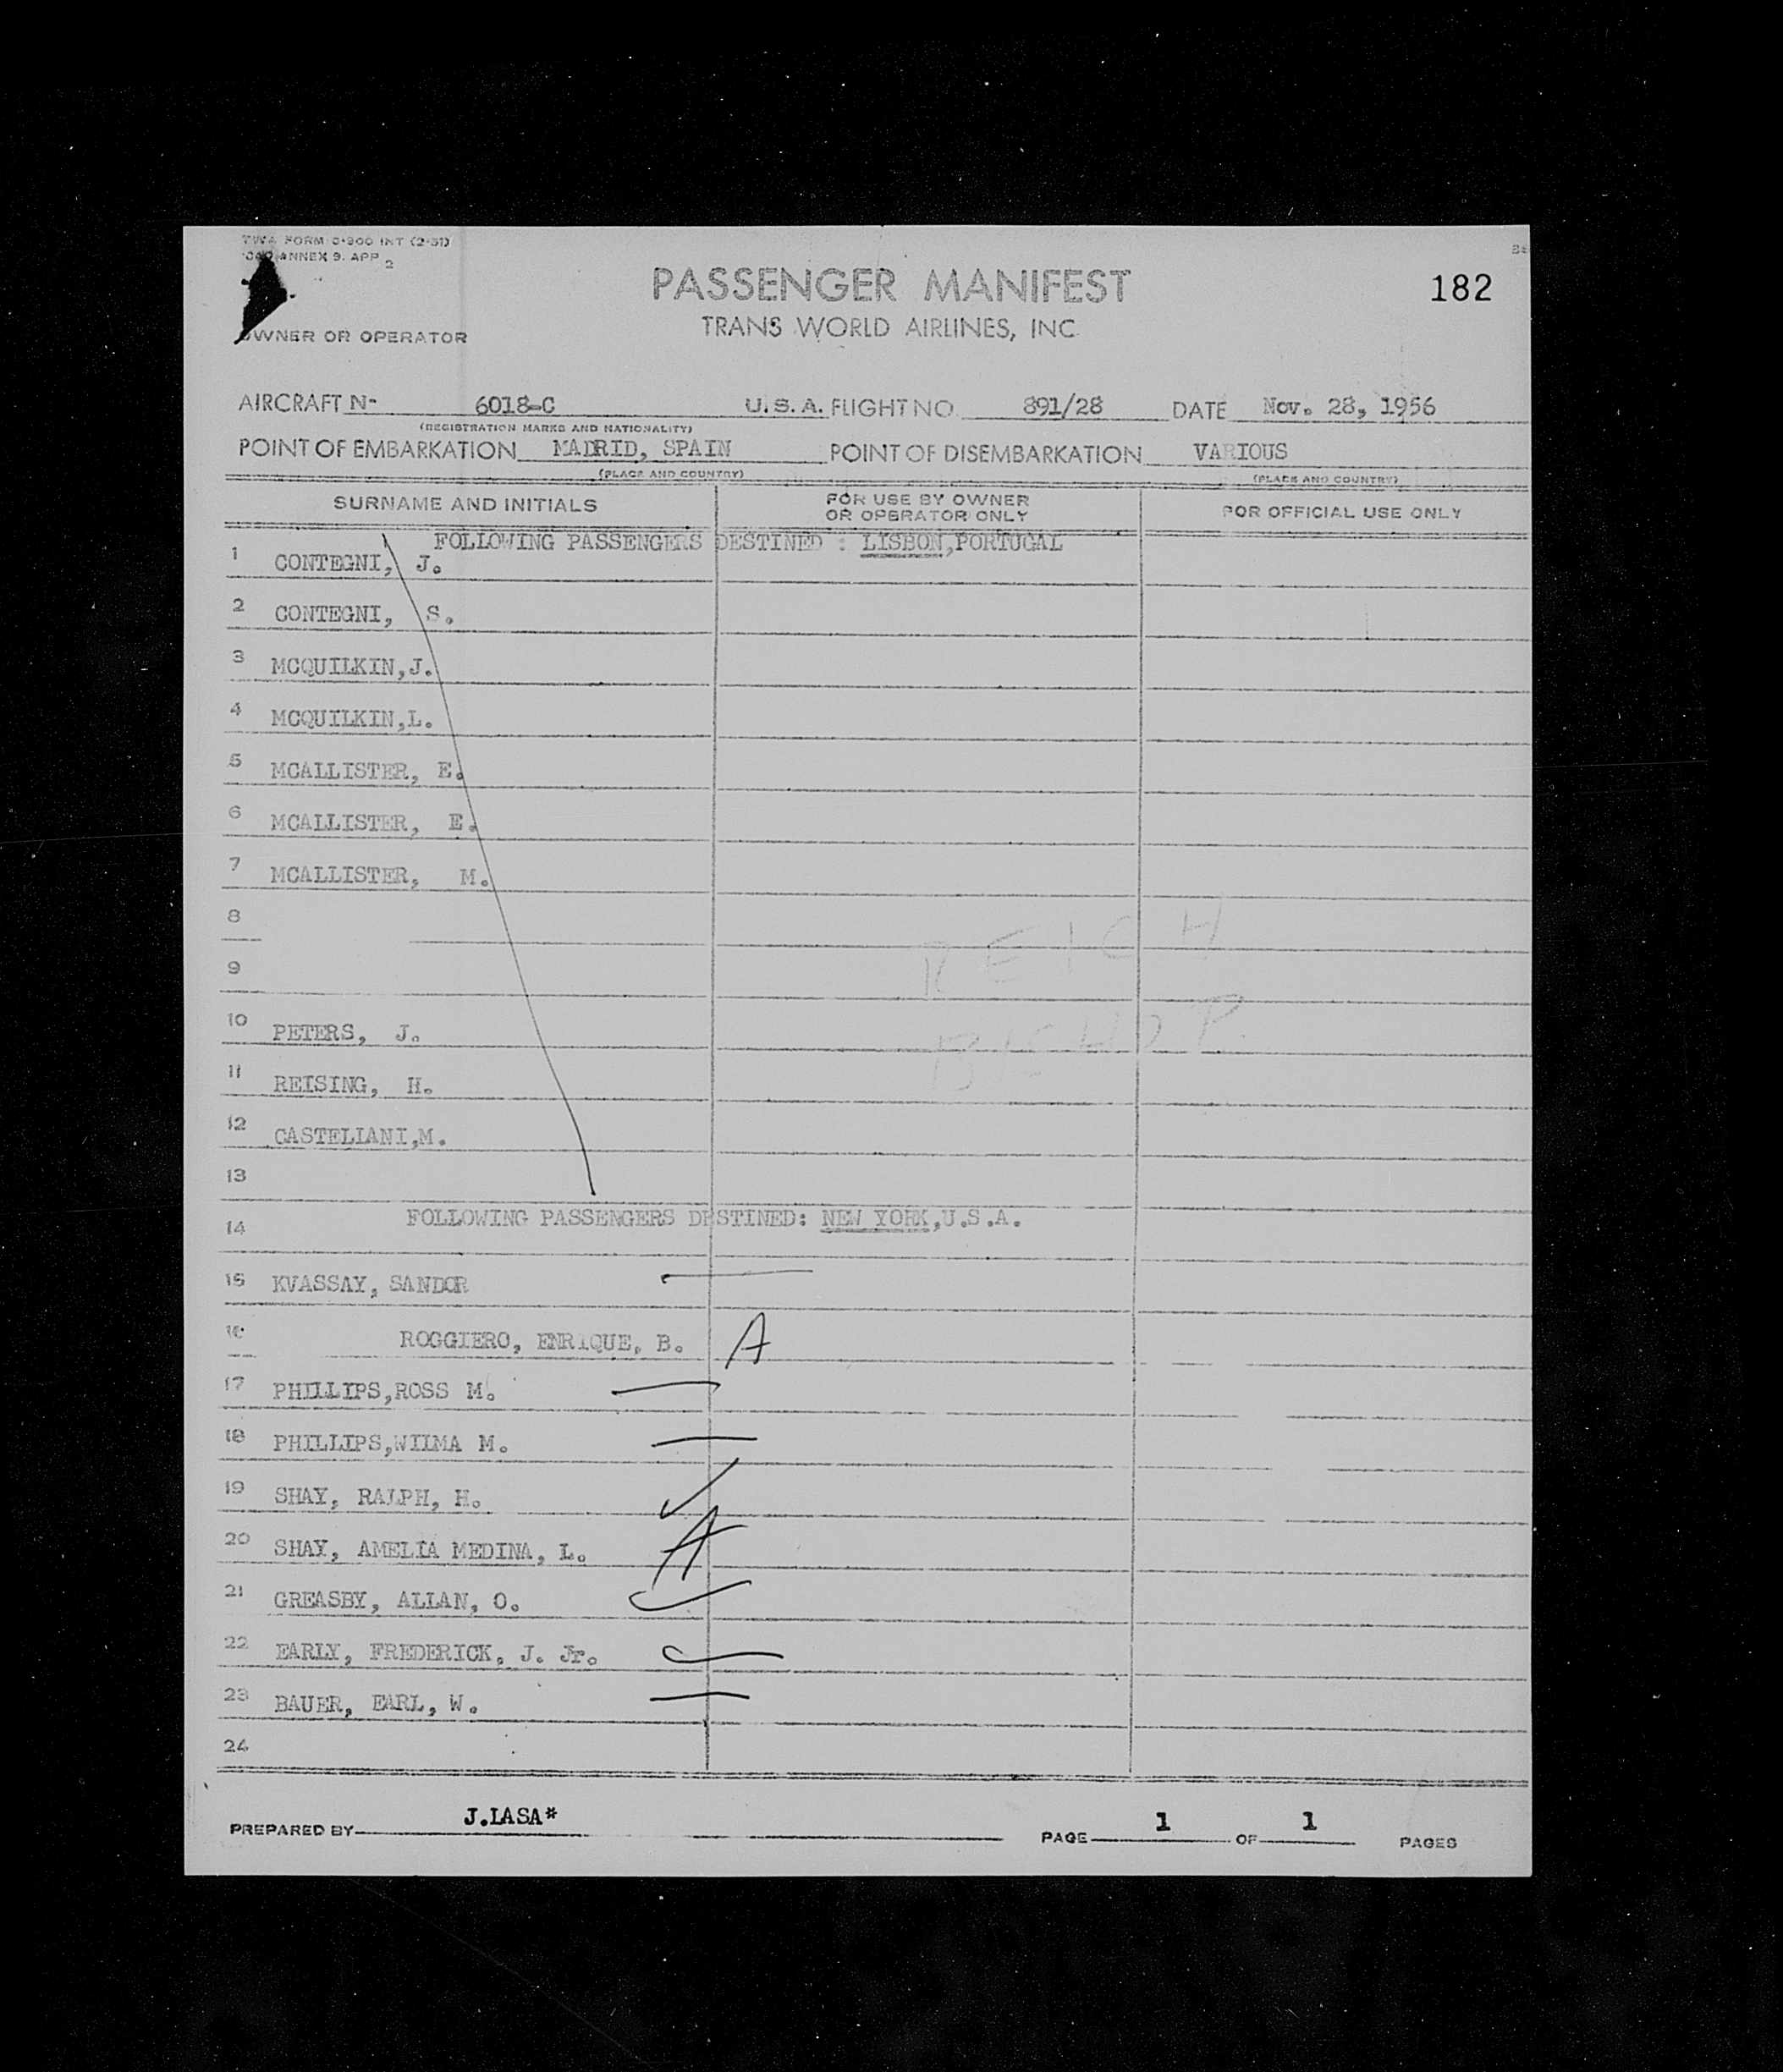 TWA FORM O-900 INT (2-51)
ANNEX 9. APP 2
PASSENGER MANIFEST
182
TRANS WORLD AIRLINES, INC
OWNER OR OPERATOR
AIRCRAFT N- 6018-C U.S.A. FLIGHT NO. 891/28 DATE Nov. 28, 1956
(REGISTRATION MARKS AND NATIONALITY)
POINT OF EMBARKATION MADRID, SPAIN POINT OF DISEMBARKATION VARIOUS
(PLACE AND COUNTRY) (PLACE AND COUNTRY)
SURNAME AND INITIALS FOR USE BY OWNER OR OPERATOR ONLY FOR OFFICIAL USE ONLY
FOLLOWING PASSENGERS DESTINED : LISBON,PORTUGAL
1 CONTEGNI, J.
2 CONTEGNI, S.
3 MCQUILKIN,J.
4 MCQUILKIN,L.
5 MCALLISTER, E.
6 MCALLISTER, E.
7 MCALLISTER, M.
8
REICH
9
10 PETERS, J.
BISHOP
11 REISING, H.
12 CASTELIANI,M.
13
FOLLOWING PASSENGERS DESTINED: NEW YORK,U.S.A.
14
15 KVASSAY, SANDOR
16 ROGGIERO, ENRIQUE, B. A
17 PHILLIPS,ROSS M.
18 PHILLIPS,WILMA M.
19 SHAY, RALPH, H.
20 SHAY, AMELIA MEDINA, L. A
21 GREASBY, ALLAN, O.
22 EARLY, FREDERICK, J. Jr.
23 BAUER, EARL, W.
24
PREPARED BY J.LASA* PAGE 1 OF 1 PAGES